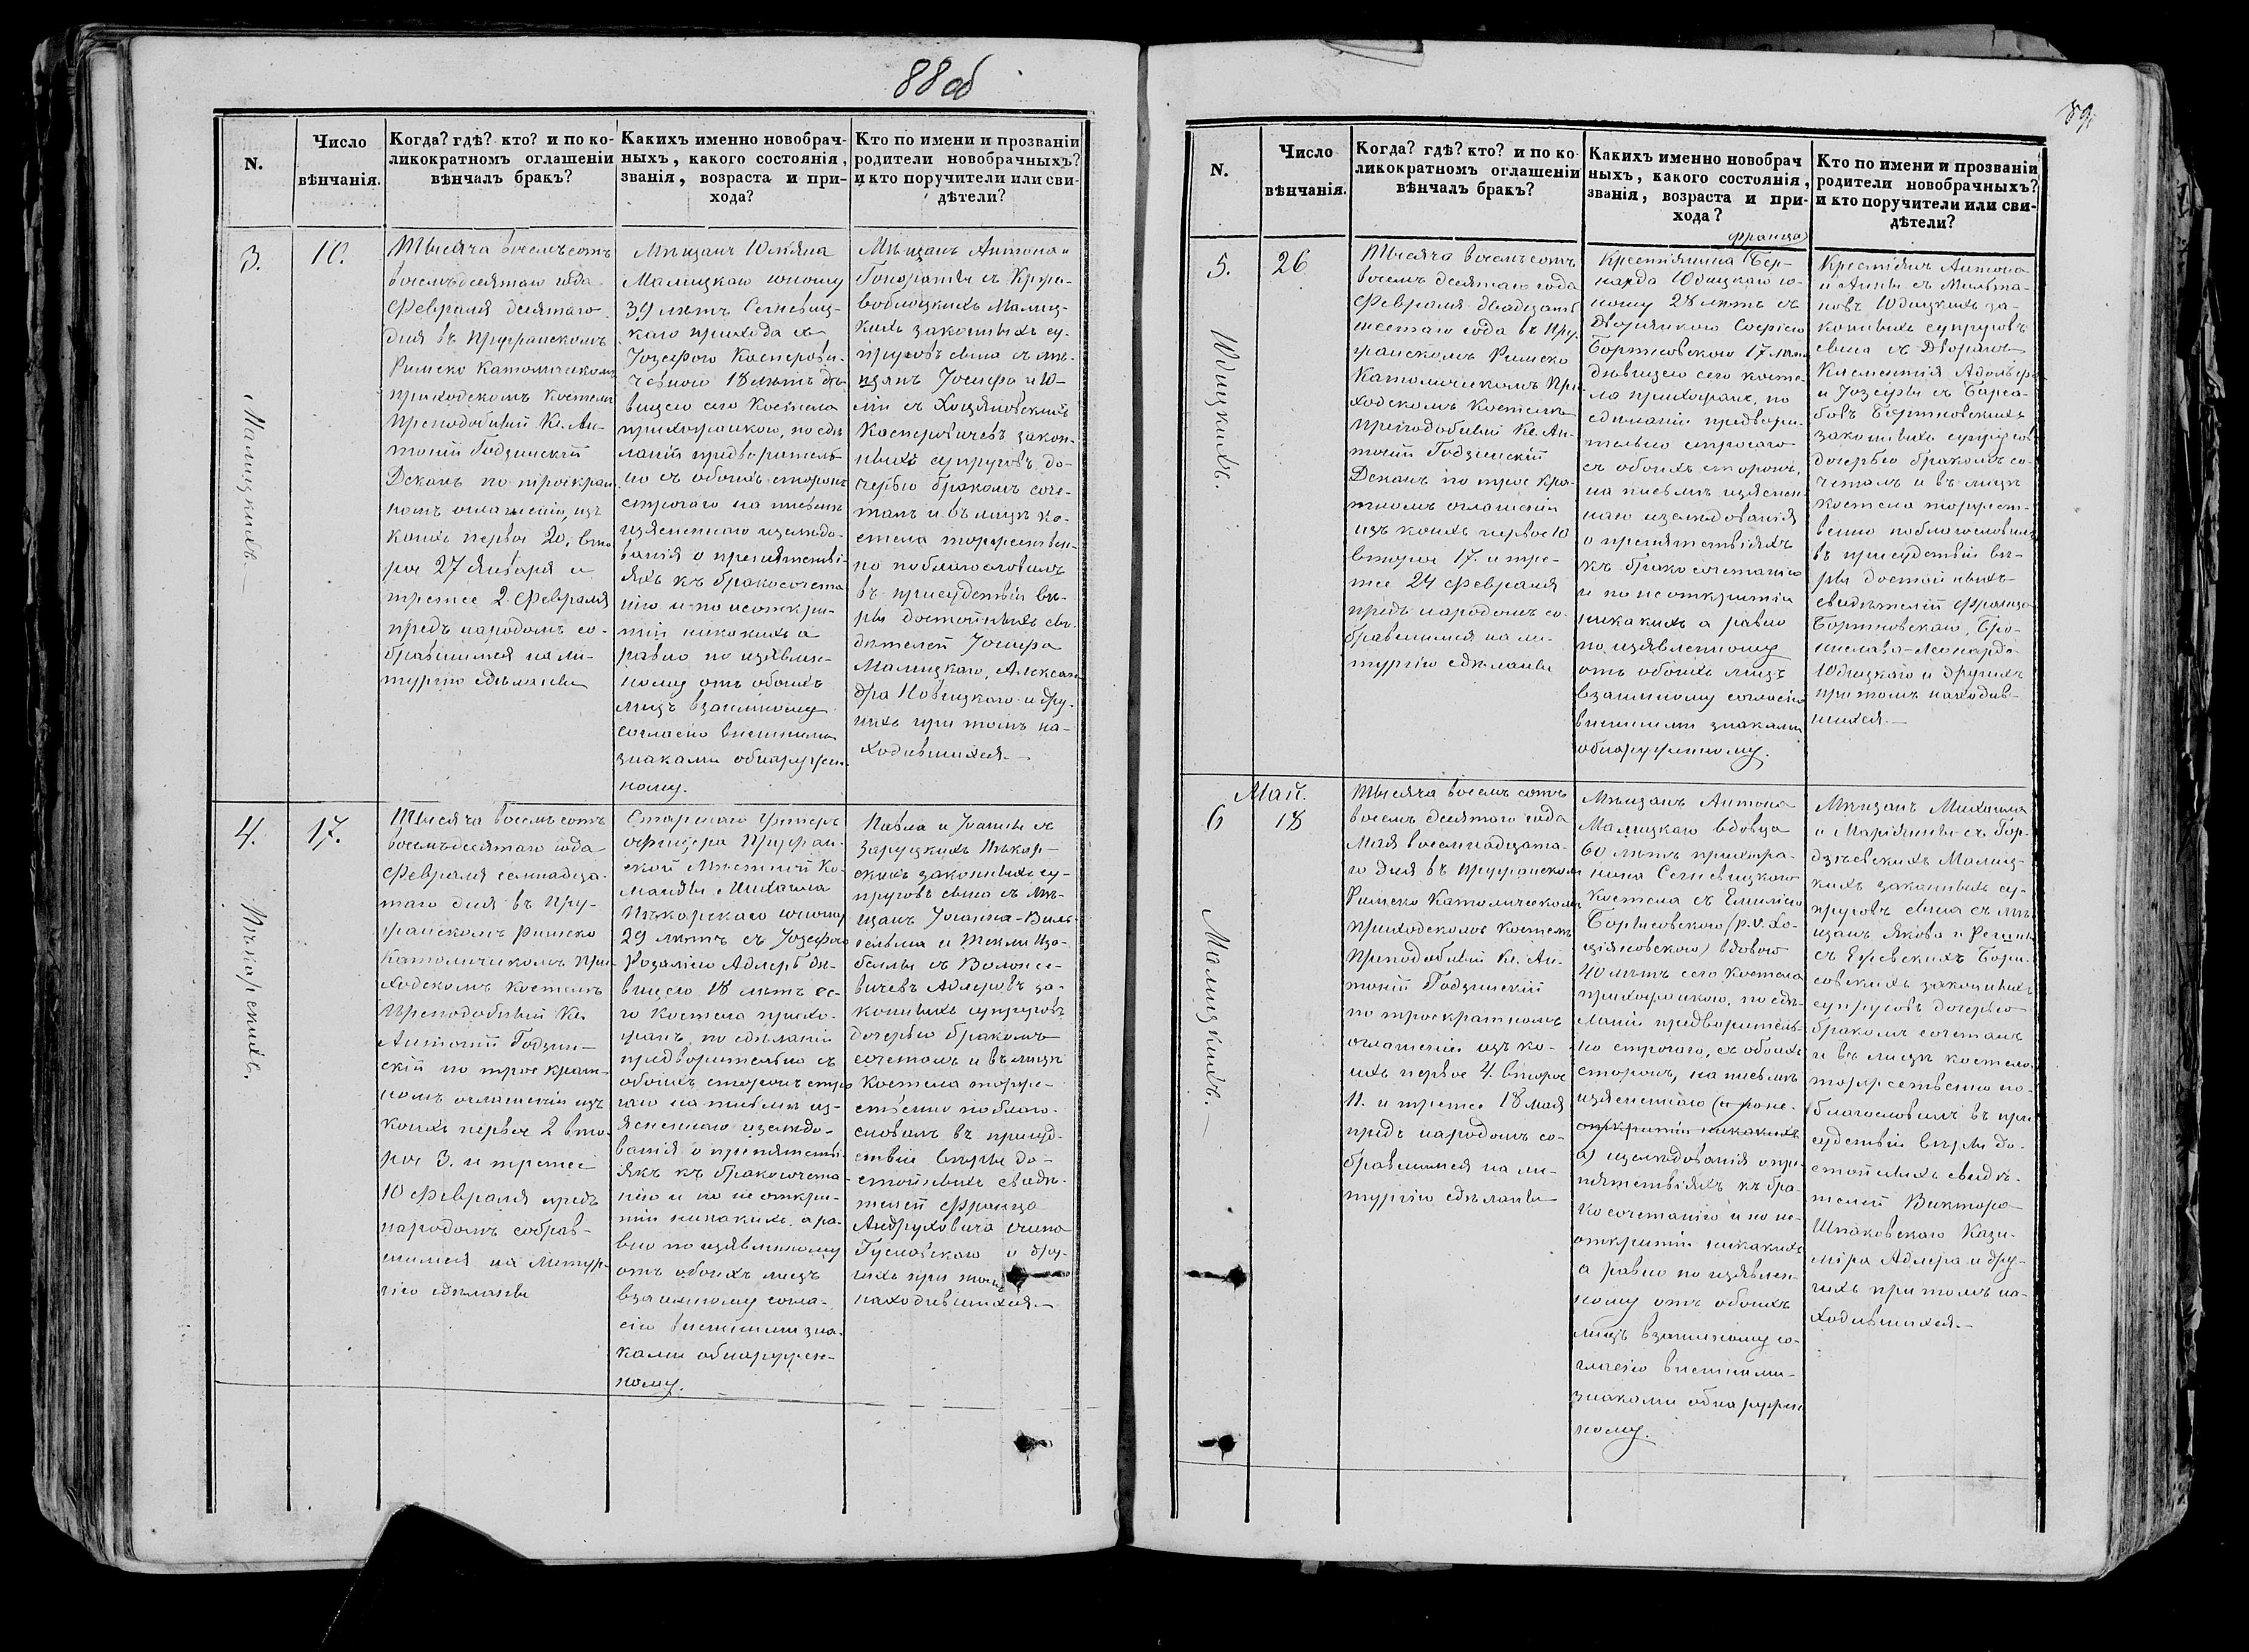 88 об
N.
Число
вѣнчанія.
Когда? гдѣ? кто? и по ко-
ликократномъ оглашеніи
вѣнчалъ бракъ?
Какихъ именно новобрач-
ныхъ, какого состоянія,
званія, возраста и при-
хода?
Кто по имени и прозванію
родители новобрачныхъ?
и кто поручители или сви-
дѣтели?
3.
Малицкихъ.
10.
Тысяча восемьсотъ
восемьдесятаго года
Февраля десятаго
дня въ Пружанскомъ
Римско Католическомъ
приходскомъ костелѣ
Преподобный Кс. Ан-
тоній Годзинскій
Деканъ по троекрат
номъ оглашеніи, изъ
коихъ первое 20. вто
рое 27 Января и
третее 2 Февраля
предъ народомъ со-
бравшимся на ли-
тургію сдѣланы
Мѣщанъ Юліяна
Малицкаго юношу
39 лѣтъ Сегневиц-
каго прихода съ
Іозефою Касперови-
чевною 18 лѣтъ дѣ-
вицею сего Костела
прихожанкою, по сдѣ
ланіи предворитель
но съ обоихъ сторонъ
строгаго на письмѣ
изясненнаго изслѣдо-
ванія о препятстві-
яхъ къ бракосочета
нію и по неоткры-
тіи никакихъ а
равно по изявлен-
ному отъ обоихъ
лицъ взаимному
согласію внешними
знаками обнаружен-
ному.
Мѣщанъ Антона и
Гонораты съ Кржи-
воблоцкихъ Малиц-
кихъ законныхъ су-
пруговъ сына съ мѣ-
щанъ Іосифа и Ю-
лiи съ Хоцяновскихъ
Касперовичевъ закон-
ныхъ супруговъ до-
черью бракомъ соче-
талъ и въ лицѣ ко-
стела торжествен-
но поблагословилъ
въ присудствіи вѣ-
ры достойныхъ сви-
дѣтелей Іосифа
Малицкаго, Алексан
дра Новицкаго и дру-
гихъ при томъ на-
ходившихся.—
4.
Пѣкарскихъ.
17.
Тысяча восемьсотъ
восемьдесятаго года
Февраля семнадца-
таго дня въ Пру-
жанскомъ Римско
Католическомъ При-
ходскомъ костелѣ
Преподобный Кс.
Антоній Годзин-
скій по троекрат-
номъ оглашеніи изъ
коихъ первое 2 вто-
рое 3. и третее
10 Февраля предъ
народомъ собрав-
шимся на Литур-
гію сдѣланы
Старшаго Унтеръ
офицера Пружан-
ской Мѣстной Ко-
манды Михаила
Пѣкарскаго юношу
29 лѣтъ съ Іозефою
Розалію Адлеръ дѣ-
вицею 18 лѣтъ се-
го костела прихо-
жанъ, по сдѣланіи
предворительно съ
обоихъ сторонъ стро
гаго на письмѣ из-
ясненнаго изслѣдо-
ванія о препятстві-
яхъ къ бракосочета-
нію и по не откры-
тіи никакихъ а ра-
вно по изявленному
отъ обоихъ лицъ
взаимному согла-
сію внешними зна-
ками обнаружен-
ному.
Павла и Іоанны съ
Заруцкихъ Пѣкар-
скихъ законныхъ су-
пруговъ сына съ мѣ-
щанъ Іоанна-Виль-
гельма и Текли Иза-
беллы съ
Адлеровъ за-
конныхъ супруговъ
дочерью бракомъ
сочеталъ и въ лицѣ
Костела торже-
ственно поблаго-
словилъ въ присуд-
ствіи вѣры до-
стойныхъ свидѣ-
телей Франца
Андруховича
и дру-
гихъ при томъ
находившихся.—
89.
N.
Число
вѣнчанія.
Когда? гдѣ? кто? и по ко
ликократномъ оглашеніи
вѣнчалъ бракъ?
Какихъ именно новобрач
ныхъ, какого состоянія,
званія, возраста и при-
хода?
Кто по имени и прозванію
родители новобрачныхъ?
и кто поручители или сви-
дѣтели?
5.
Юдицкихъ.
26
Тысяча восемьсотъ
восемь десятаго года
Февраля двадцать
шестаго года въ Пру
жанскомъ Римско
Католическомъ При
ходскомъ Костелѣ
преподобный Кс. Ан-
тоній Годзинскій
Деканъ по трое кра-
тномъ оглашеніи
изъ коихъ первое 10
второе 17. и тре-
тее 24 Февраля
предъ народомъ со-
бравшимся на ли-
тургію сдѣланы
Франца
Крестіянина Бер-
нарда Юдицкаго ю-
ношу 28 лѣтъ съ
Дворянкою Софіею
Бортновскою 17 лѣтъ
дѣвицею сего косте-
ла прихожанъ, по
сдѣланіи предвори-
тельно строгаго
съ обоихъ сторонъ,
на письмѣ изяснен
наго изслѣдованія
о препятствіяхъ
къ бракосочетанію
и по не открытіи
никакихъ а равно
по изявленному
отъ обоихъ лицъ
взаимному согласію
внешними знаками
обнаруженному.
Крестіянъ Антона
и Анны съ
Юдицкихъ за-
конныхъ супруговъ
сына съ Дворянъ
Клементія Адольфа
и Іозефы съ
Бортновскихъ
законныхъ супруговъ
дочерью бракомъ со-
четалъ и въ лицѣ
костела торжест-
венно поблагословилъ
въ присудствіи вѣ-
ры достойныхъ
свидѣтелей Франца
Бортновскаго, Бро-
нислава-Леонарда
Юдицкаго и другихъ
при томъ находив-
шихся.—
Май.
6
Малицкихъ.—
18
Тысяча восемь сотъ
восемь десятаго года
Мая восемнадцата-
го дня въ Пружанскомъ
Римско Католическомъ
приходскомъ костелѣ
Преподобный Кс. Ан-
тоній Годзинскій
по троекратномъ
оглашеніи изъ ко-
ихъ первое 4. второе
11. и третее 18 мая
предъ народомъ со-
бравшимся на ли-
тургію сдѣланы
Мѣщанъ Антона
Малицкаго вдовца
60 лѣтъ прихожа-
нина Сегневицкаго
костела съ Емиліею
Борисовскою (p.v. Хо-
цяновскою) вдовою
40 лѣтъ сего костела
прихожанкою, по сдѣ-
ланіи предворитель-
но строгаго, съ обоихъ
сторонъ, на письмѣ
изясненнаго (и по не-
открытіи никакихъ
а) изслѣдованія о пре-
пятствіяхъ къ бра-
косочетанію и по не-
открытіи никакихъ
а равно по изявлен-
ному отъ обоихъ
лицъ взаимному со-
гласію внешними
знаками обнаружен
ному.
Мѣщанъ Михаила
и Маріянны съ Гор-
дзѣевскихъ Малиц-
кихъ законныхъ су-
пруговъ сына съ мѣ-
щанъ Якова и Регины
съ Бори-
совскихъ законныхъ
супруговъ дочерью
бракомъ сочеталъ
и въ лицѣ костела
торжественно по-
благословилъ въ при
судствіи вѣры до-
стойныхъ свидѣ-
телей Виктора
Шпаковскаго Кази-
міра Адлера и дру-
гихъ при томъ на-
ходившихся.—